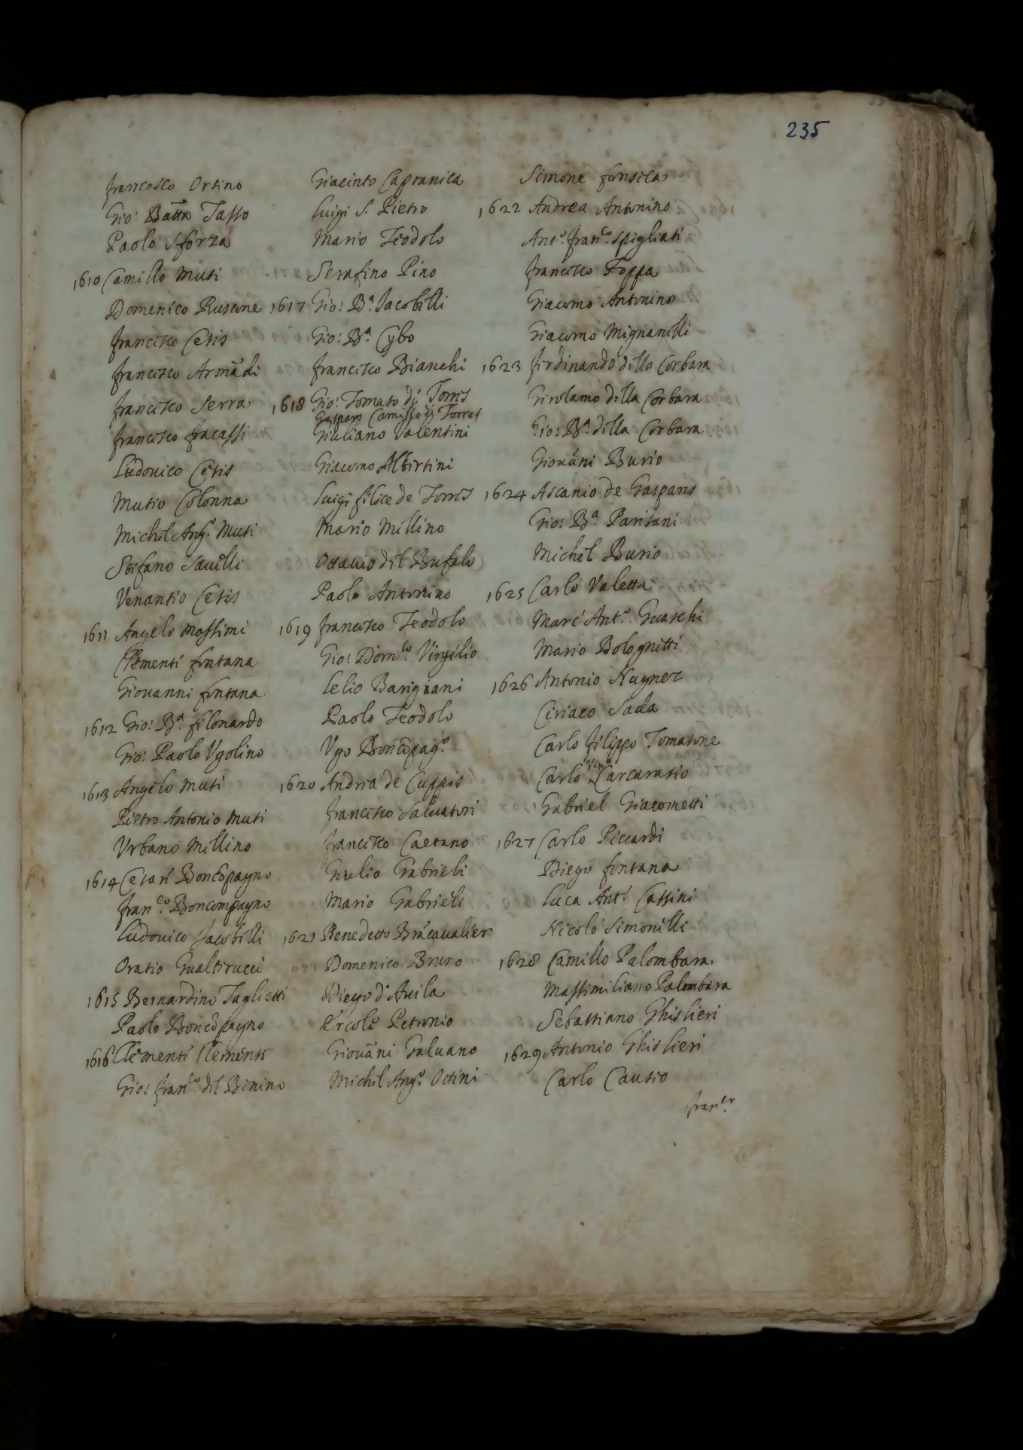 235
francesco Ortino
Gio: Batta Tasso
Paolo Sforza
1610 Camillo Muti
Domenico Rusione
francesco Cesis
francesco Armādi
francesco Serra
francesco fracassi
Ludovico Cesis
Mutio Colonna
Michel Ang.º Muti
Stefano Savelli
Venantio Cesis
1611 Angelo Massimi
Clementi fontana
Giovanni fontana
1612 Gio: B.ª filonardo
Gio: Paolo Ugolino
1613 Angelo Muti
Pietro Antonio Muti
Urbano Millino
1614 Cesari Boncōpagno
fran.co Boncompagno
Ludovico Jacobilli
Oratio Gualtirucci
1615 Bernardino Taglietti
Paolo Boncōpagno
1616 Clementi Clementi
Gio: fran.co del Benino
Giacinto Capranica
Luigi S. Pietro
Mario Teodolo
Serafino Pino
1617 Gio: B.ª Jacobilli
Gio: B.ª Cybo
francesco Bianchi
1618 Gio: Tomaso di Torres
Gasparo Camillo di Torres
Giuliano Valentini
Giacomo Albertini
Luigi felice de Torres
Mario Millino
Ottavio del Bufalo
Paolo Antonino
1619 francesco Teodolo
Gio: Dom.co Virgilio
Lelio Barignani
Paolo Teodolo
Ugo Boncōpag.º
1620 Andrea de Cuppis
francesco Salvatori
francesco Caetano
Giulio Gabrieli
Mario Gabrieli
1621 Benedetto Bracavalier
Domenico Bruno
Diego d'Avila
Ercole Petronio
Giovāni Galvano
Michel Ang.º Octini
Simone fonseca
1622 Andrea Antonino
Ant.º fran.º Spigliati
francesco Foppa
Giacomo Antonino
Giacomo Mignanelli
1623 ferdinando della Corbara
Girolamo della Corbara
Gio: B.ª della Corbara
Giovāni Burio
1624 Ascanio de Gasparis
Gio: B.ª Parisani
Michel Burio
1625 Carlo Valetta
Marc' Ant.º Guaschi
Mario Bolognetti
1626 Antonio Nugnez
Ciriaco Sada
Carlo filippo Tomasone
Carlo Carcarasio
Gabriel Giacometti
1627 Carlo Piccardi
Diego fontana
Luca Ant.º Cassini
Nicolò Simonelli
1628 Camillo Palombara
Massimiliano Palombara
Sebastiano Ghislieri
1629 Antonio Ghislieri
Carlo Causio